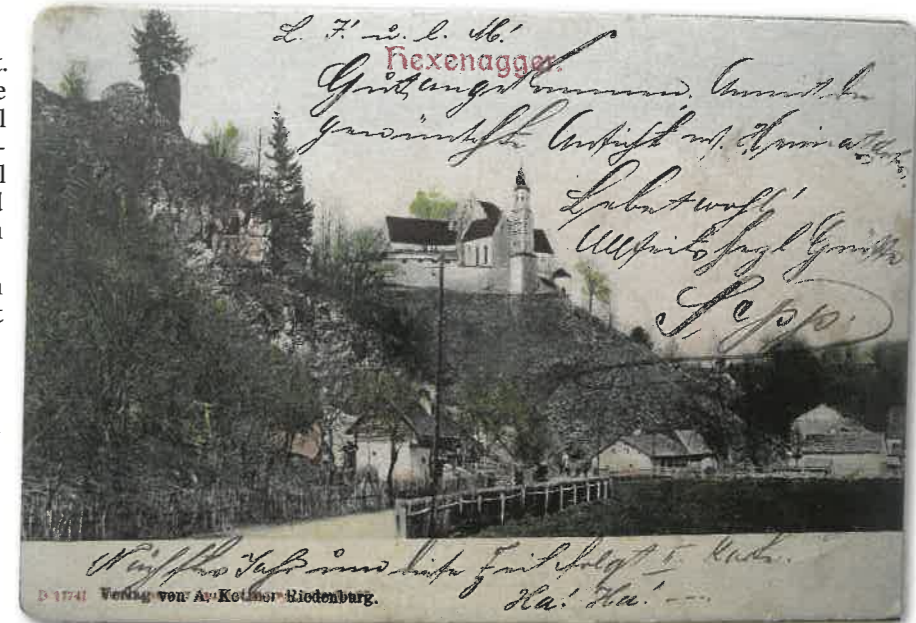 t.
e
l
-
l
d
n
n
t
L. F. u. l. M!
Hexenagger.
Gut angekommen. Anmit die
gewünschte Ansicht v. Heimat
Lebet wohl!
Allseits herzl Grüße
Sepp.
Nächstes Jahr um diese Zeit folgt I. Karte.
Ha! Ha! ---
D 11741 Verlag von A. Kettner Riedenburg.